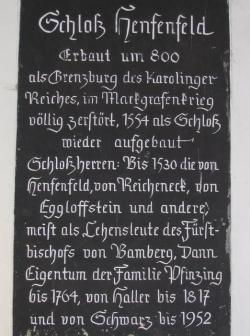 Schloß Henfenfeld
Erbaut um 800
als Grenzburg des Karolinger
Reiches, im Markgrafenkrieg
völlig zerstört, 1554 als Schloß
wieder aufgebaut
Schloßherren: Bis 1530 die von
Henfenfeld, von Reicheneck, von
Egloffstein und andere,
meist als Lehensleute des Fürst-
bischofs von Bamberg, Dann
Eigentum der Familie Pfinzing
bis 1764, von Haller bis 1817
und von Schwarz bis 1952